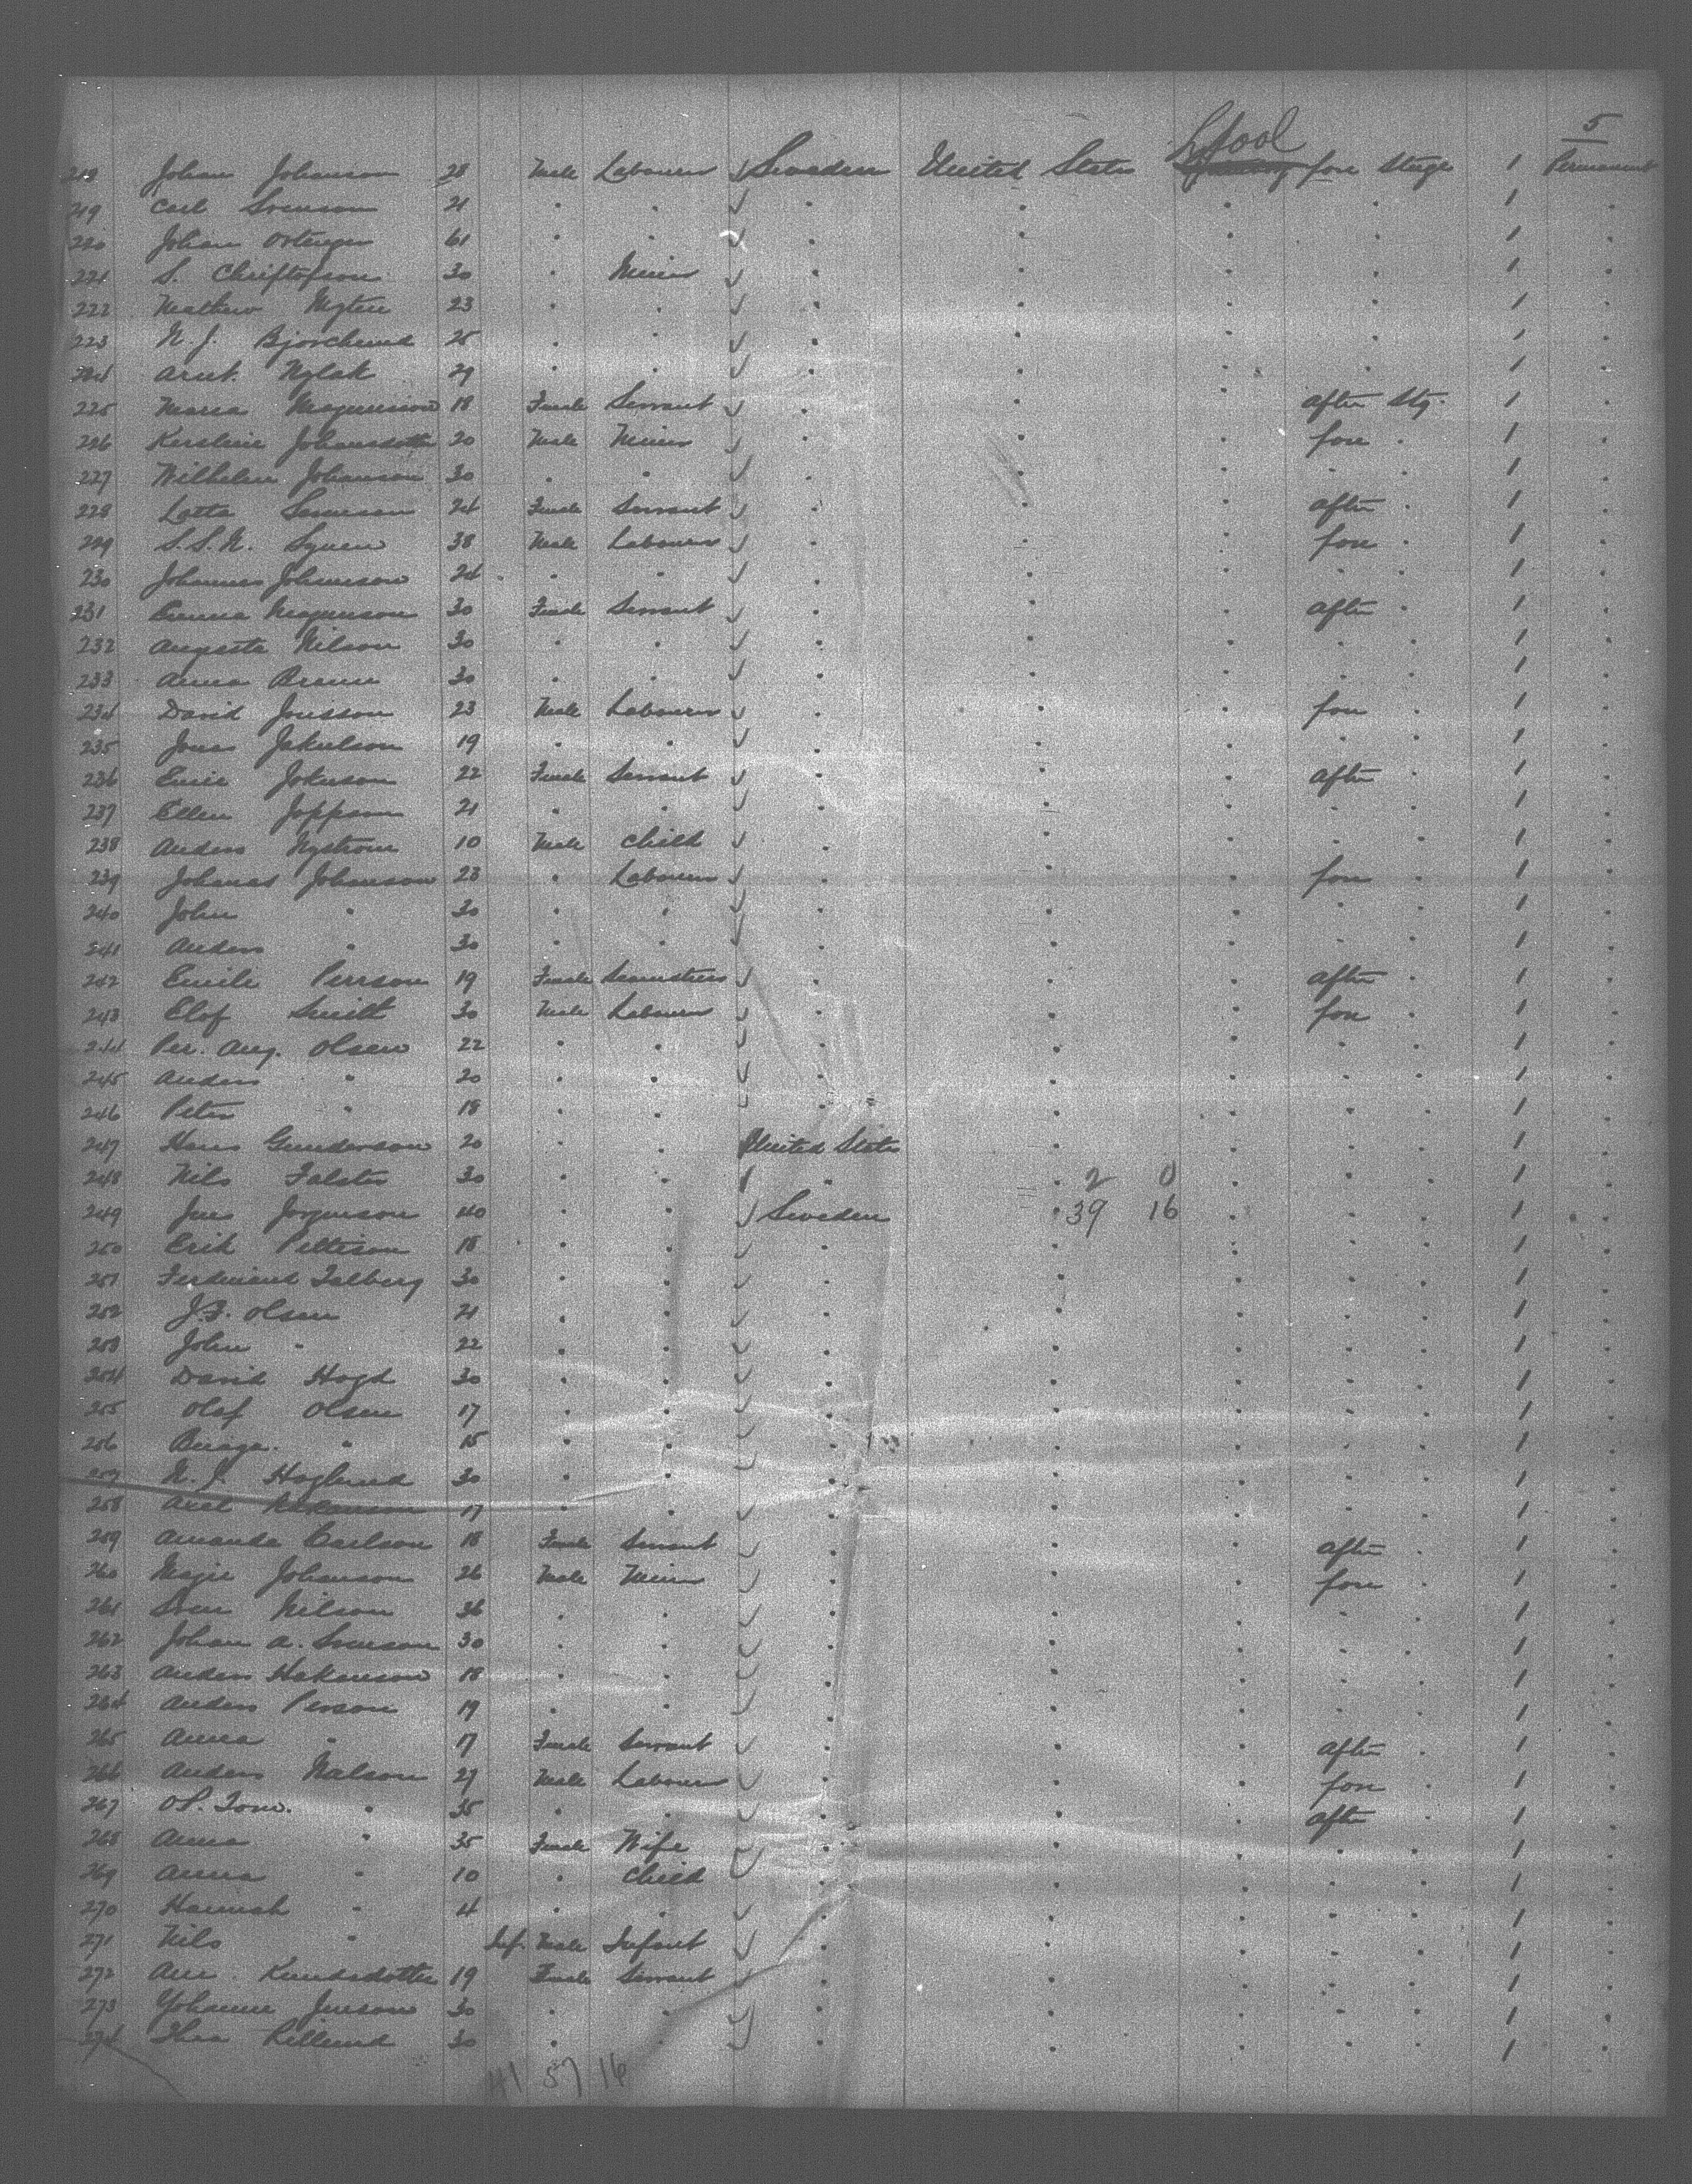 5
L'pool
218 Johan Johanson 28 Male Labourer Sweden United States fore Stage 1 Permanent
219 Carl Svenson 21 " " " " " " 1 "
220 Johan 61 " " " " " " 1 "
221 S. Christofson 30 " Miner " " " " 1 "
222 Mathew 23 " " " " " " 1 "
223 N. J. 25 " " " " " " 1 "
224 Nylak 29 " " " " " " 1 "
225 Maria Magnusson 18 Female Servant " " " after Stg. 1 "
226 Johansdotter 20 Male Miner " " " fore " 1 "
227 Wilhelm Johanson 30 " " " " " " " 1 "
228 Lotta 24 Female Servant " " " after " 1 "
229 S. S. N. 38 Male Labourer " " " fore " 1 "
230 Johannes Johanson 24 " " " " " " " 1 "
231 Emma Magnuson 30 Female Servant " " " after " 1 "
232 Augusta Nilson 30 " " " " " " " 1 "
233 Anna 30 " " " " " " " 1 "
234 David Jonsson 23 Male Labourer " " " fore " 1 "
235 Jonas 19 " " " " " " " 1 "
236 Johnson 22 Female Servant " " " after " 1 "
237 Ellen Joppson 21 " " " " " " " 1 "
238 Anders Nystrom 10 Male Child " " " " " 1 "
239 Johanas Johanson 23 " Labourer " " " fore " 1 "
240 John " 30 " " " " " " " 1 "
241 Anders " 30 " " " " " " " 1 "
242 Emile Perrson 19 Female Seamstress " " " after " 1 "
243 Elof Smitt 30 Male Labourer " " " fore " 1 "
244 Per. Aug. Olsen 22 " " " " " " " 1 "
245 Anders " 20 " " " " " " " 1 "
246 Peter " 18 " " " " " " " 1 "
247 Hans Gunderson 20 " " United States " " " " 1 "
248 Nils Falster 30 " " " " 2 0 " " " 1 "
249 Jens Jorgenson 40 " " Sweden " 39 16 " " " 1 "
250 Erik Petterson 18 " " " " " " " 1 "
251 Ferdinand Talberg 30 " " " " " " " 1 "
252 J. F. Olsen 21 " " " " " " " 1 "
253 John " 22 " " " " " " " 1 "
254 David 30 " " " " " " " 1 "
255 Olaf Olsen 17 " " " " " " " 1 "
256 " 15 " " " " " " " 1 "
257 N. J. Hoglund 30 " " " " " " " 1 "
258 Axel 17 " " " " " " " 1 "
259 Amanda Carlson 18 Female Servant " " " after " 1 "
260 Johanson 26 Male Miner " " " fore " 1 "
261 Sven Nilson 36 " " " " " " " 1 "
262 Johan A. Svenson 30 " " " " " " " 1 "
263 Anders Hakanson 18 " " " " " " " 1 "
264 Anders Person 19 " " " " " " " 1 "
265 Anna " 17 Female Servant " " " after " 1 "
266 Anders Nalson 29 Male Labourer " " " fore " 1 "
267 " 35 " " " " " after " 1 "
268 Anna " 35 Female Wife " " " " " 1 "
269 Anna " 10 " Child " " " " " 1 "
270 Hannah " 4 " " " " " " " 1 "
271 Nils " Inf. Male Infant " " " " " 1 "
272 Ane. Knudsdotter 19 Female Servant " " " " " 1 "
273 Johanne Jenson 30 " " " " " " " 1 "
274 30 " " " " " " " 1 "
41 57 16